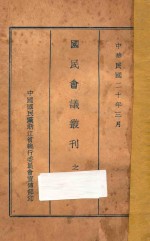 中華民國二十年三月
國民會議叢刊 之
中國國民黨浙江省執行委員會宣傳部印